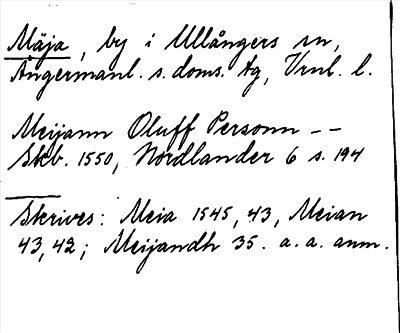 Mäja, by i Ullångers sn,
Ångermanl. s. doms. tg, Vrnl. l.
Meijann Oluff Personn --
Skb. 1550, Nordlander 6 s. 194
Skrives: Meia 1545, 43, Meian
43, 42; Meijandh 35. a. a. anm.